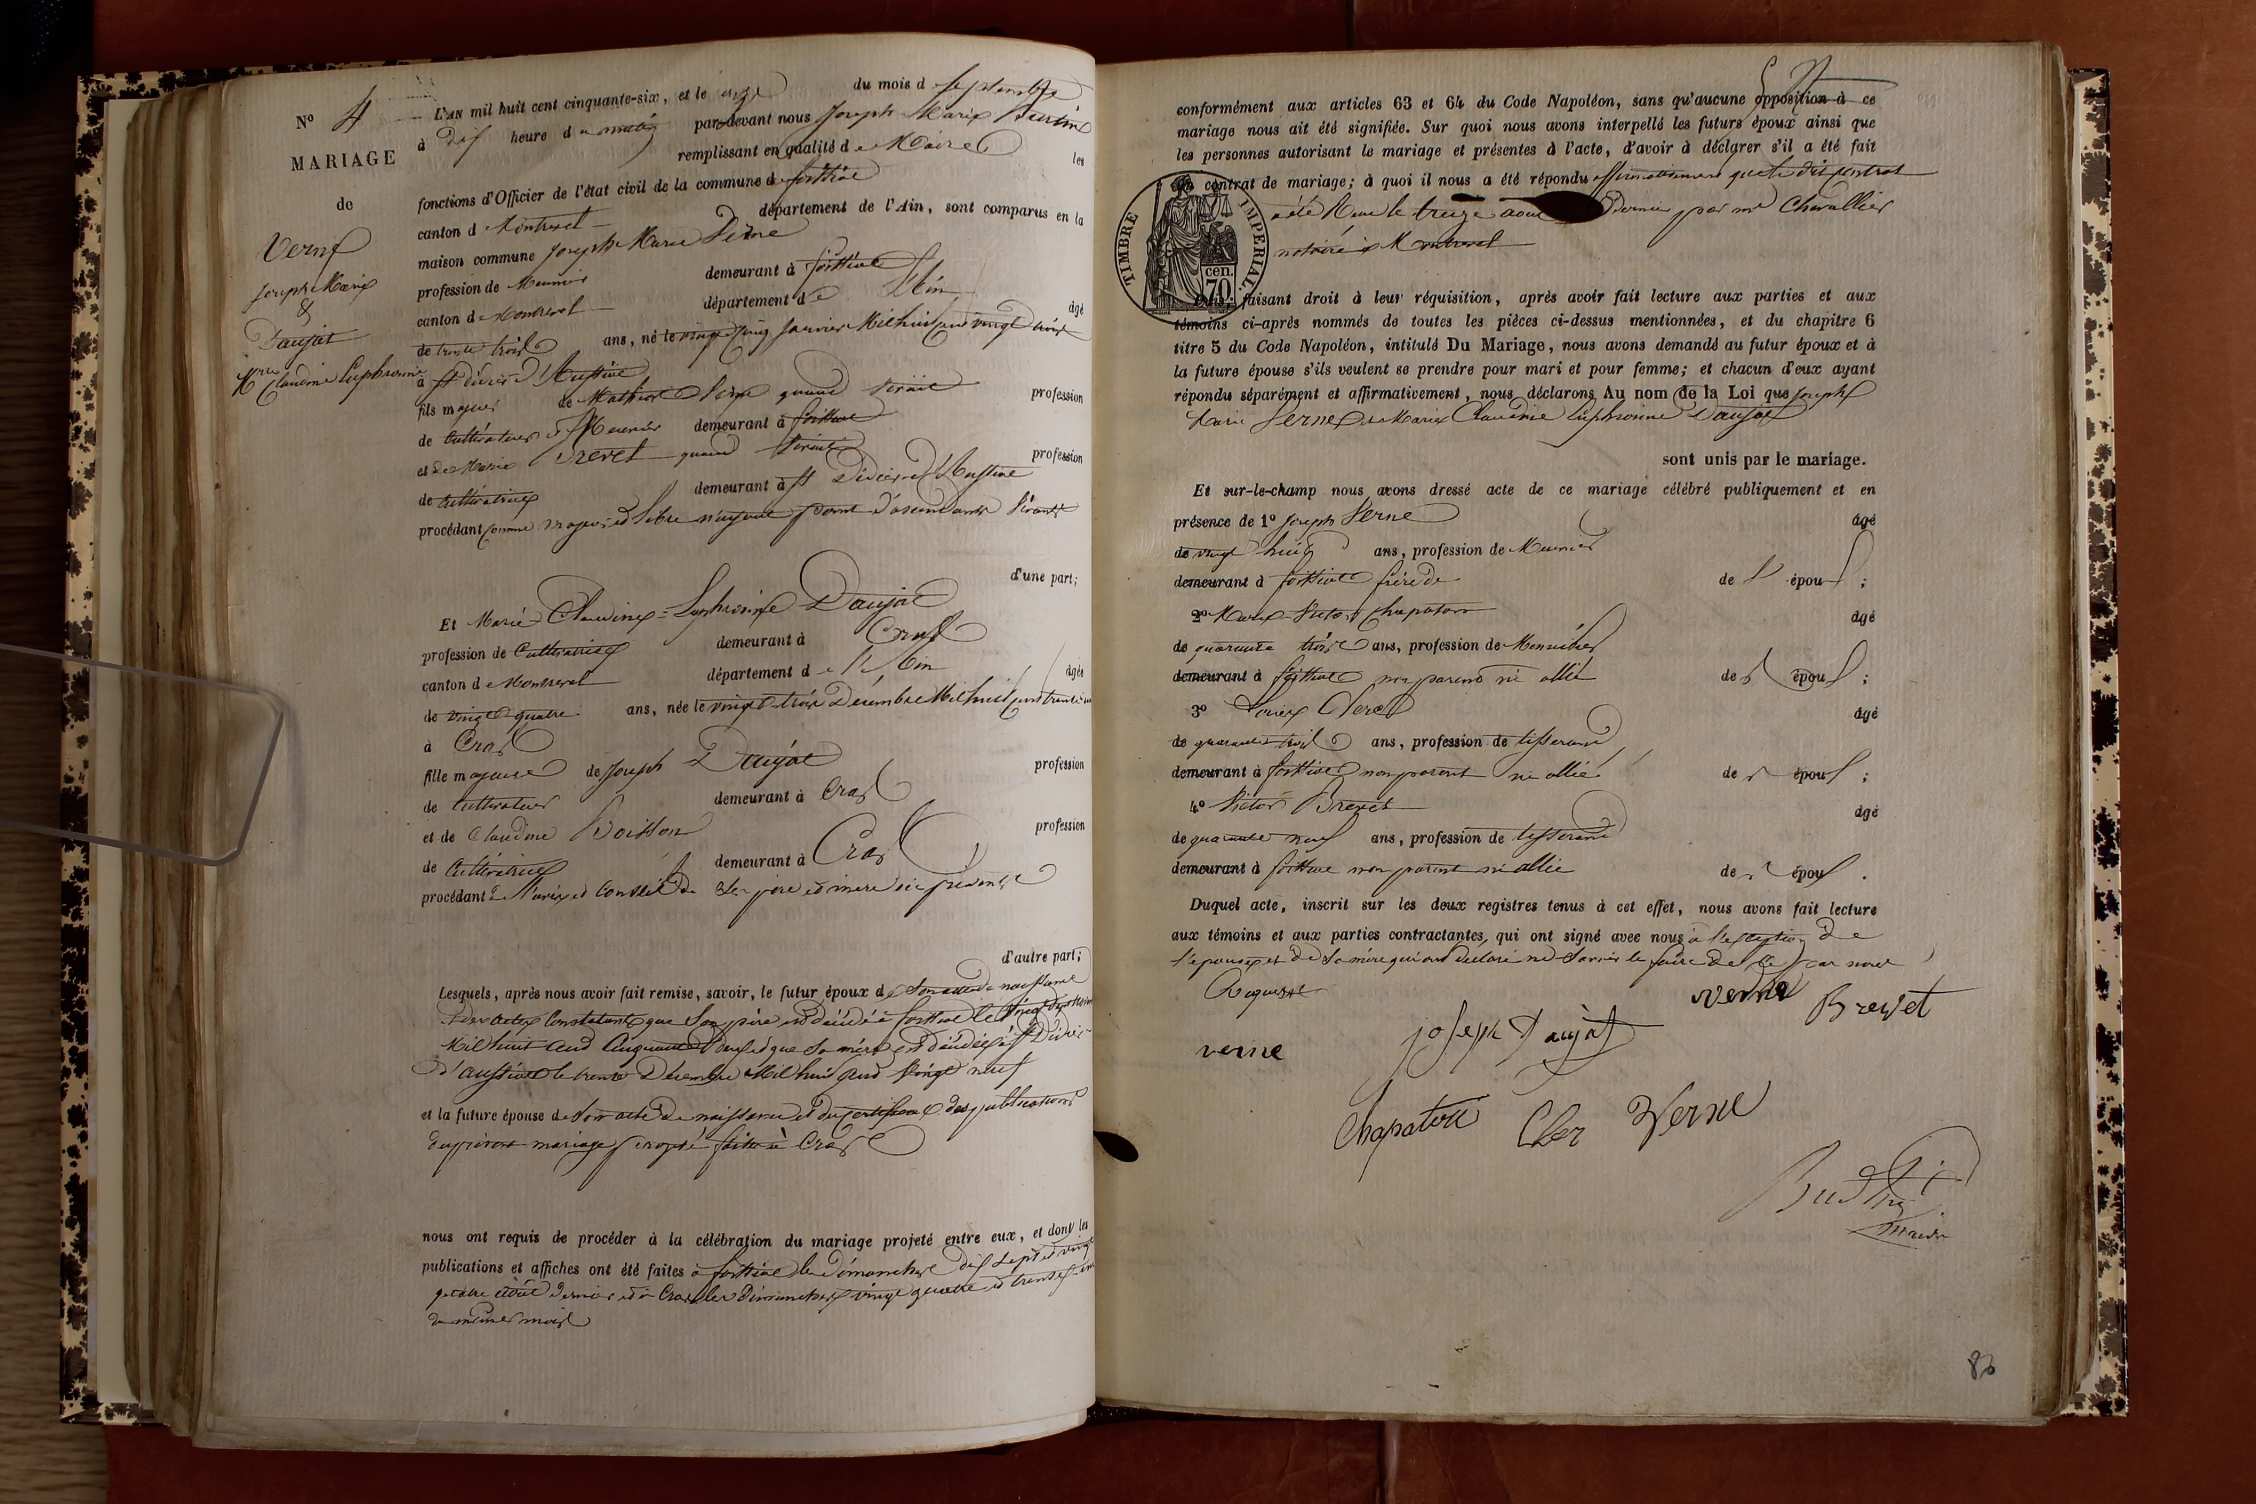 N° 4
MARIAGE
de
Verne
Joseph Marie
&
Daujat
Mie Claudine Euphrosine
L'AN mil huit cent cinquante-six, et le onze du mois de septembre
à dix heure du matin par-devant nous Joseph Marie Burtin
remplissant en qualité de Maire les
fonctions d'Officier de l'état civil de la commune de foissiat
canton de Montrevel département de l'Ain, sont comparus en la
maison commune Joseph Marie Verne
profession de Meunier demeurant à foissiat
canton de Montrevel département de l'Ain âgé
de trente trois ans, né le vingt cinq Janvier Mil huit cent vingt trois
à St didier d'Aussiat
fils majeur de Verne quand vivait profession
de Cultivateur et Meunier demeurant à foissiat
et de Marie Brevet quand vivait profession
de Cultivatrice demeurant à St Didier d'Aussiat
procédant comme majeur et libre n'ayant point d'ascendants vivants
d'une part;
Et Marie Claudine Euphrosine Daujat
profession de Cultivatrice demeurant à Cras
canton de Montrevel département de l'Ain âgée
de vingt quatre ans, née le vingt trois Décembre Mil huit cent trente un
à Cras
fille majeure de Joseph Daujat profession
de Cultivateur demeurant à Cras
et de Claudine Boisson profession
de Cultivatrice demeurant à Cras
procédant de l'avis et conseil de ses père et mère ici présents
d'autre part;
Lesquels, après nous avoir fait remise, savoir, le futur époux de son acte de naissance
des actes constatant que son père est décédé à foissiat le vingt
Mil huit cent cinquante et que sa mère est décédée à St Didier
d'aussiat le trente Décembre Mil huit cent vingt neuf
et la future épouse de son acte de naissance et du certificat des publications
du présent mariage projeté faites à Cras
nous ont requis de procéder à la célébration du mariage projeté entre eux, et dont les
publications et affiches ont été faites à foissiat les Dimanches dix sept et vingt
quatre août dernier et à Cras les dimanches vingt quatre et trente un
du même mois
conformément aux articles 63 et 64 du Code Napoléon, sans qu'aucune opposition à ce
mariage nous ait été signifiée. Sur quoi nous avons interpellé les futurs époux ainsi que
les personnes autorisant le mariage et présentes à l'acte, d'avoir à déclarer s'il a été fait
un contrat de mariage; à quoi il nous a été répondu affirmativement que le dit contrat
a été Reçu le treize août Dernier par me Chevallier
notaire à Montrevel
TIMBRE IMPERIAL
cen.
70
Puis, faisant droit à leur réquisition, après avoir fait lecture aux parties et aux
témoins ci-après nommés de toutes les pièces ci-dessus mentionnées, et du chapitre 6
titre 5 du Code Napoléon, intitulé Du Mariage, nous avons demandé au futur époux et à
la future épouse s'ils veulent se prendre pour mari et pour femme; et chacun d'eux ayant
répondu séparément et affirmativement, nous déclarons Au nom de la Loi que Joseph
Marie Verne et Marie Claudine Euphrosine Daujat
sont unis par le mariage.
Et sur-le-champ nous avons dressé acte de ce mariage célébré publiquement et en
présence de 1° Joseph Verne âgé
de vingt huit ans, profession de Meunier
demeurant à foissiat frère de de l' époux ;
2° Marie Victor Chapaton âgé
de quarante trois ans, profession de Menuisier
demeurant à foissiat non parent ni allié des époux ;
3° Clerc âgé
de quarante trois ans, profession de tisserand
demeurant à foissiat non parent ni allié des époux ;
4° Victor Brevet âgé
de quarante neuf ans, profession de tisserand
demeurant à foissiat non parent ni allié des époux .
Duquel acte, inscrit sur les deux registres tenus à cet effet, nous avons fait lecture
aux témoins et aux parties contractantes, qui ont signé avec nous à l'exception de
l'épouse et de sa mère qui ont déclaré ne savoir le faire de ce par nous
Requises
verne Brevet
joseph Daujat
verne
Chapaton Cler Verne
Burtin
maire
83